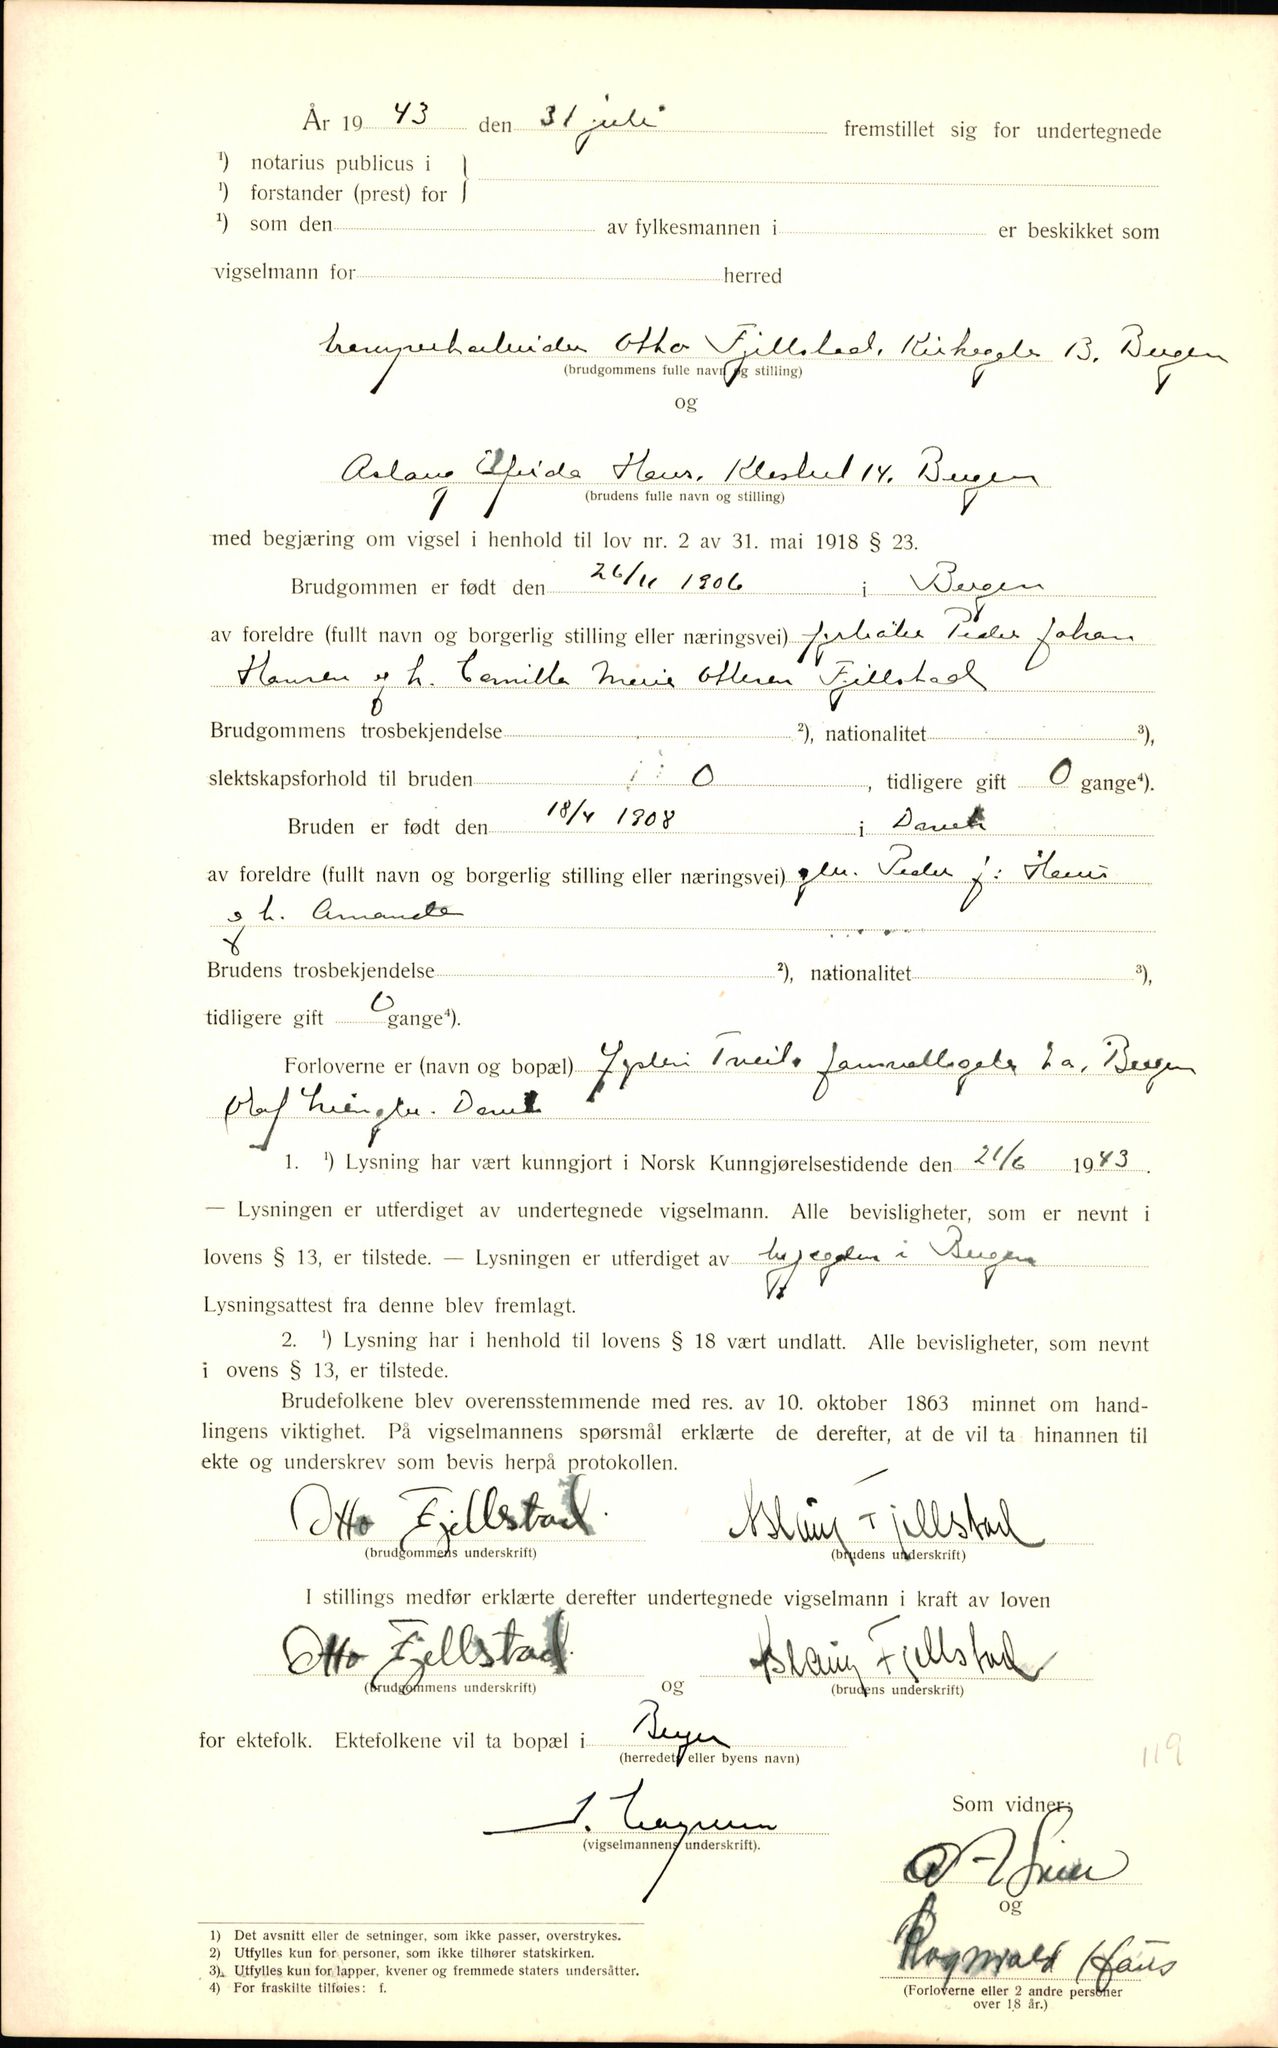 År 19 43 den 31 juli fremstillet sig for undertegnede
1) notarius publicus i
1) forstander (prest) for
1) som den av fylkesmannen i er beskikket som
vigselmann for herred
Otto Fjellstad, Kirkegt. 13, Bergen
(brudgommens fulle navn og stilling)
og
Aslaug Elfrida Haus, 14. Bergen
(brudens fulle navn og stilling)
med begjæring om vigsel i henhold til lov nr. 2 av 31. mai 1918 § 23.
Brudgommen er født den 26/11 1906 i Bergen
av foreldre (fullt navn og borgerlig stilling eller næringsvei) Peder Johan
Hansen og h. Camilla Marie Ottesen Fjellstad
Brudgommens trosbekjendelse 2), nationalitet 3),
slektskapsforhold til bruden 0, tidligere gift 0 gange4).
Bruden er født den 18/4 1908 i
av foreldre (fullt navn og borgerlig stilling eller næringsvei) Peder J: Haus
og h. Amanda
Brudens trosbekjendelse 2), nationalitet 3),
tidligere gift 0 gange4).
Forloverne er (navn og bopæl) Tveit, 2a, Bergen
Olaf
1. 1) Lysning har vært kunngjort i Norsk Kunngjørelsestidende den 21/6 1943.
— Lysningen er utferdiget av undertegnede vigselmann. Alle bevisligheter, som er nevnt i
lovens § 13, er tilstede. — Lysningen er utferdiget av i Bergen
Lysningsattest fra denne blev fremlagt.
2. 1) Lysning har i henhold til lovens § 18 vært undlatt. Alle bevisligheter, som nevnt
i ovens § 13, er tilstede.
Brudefolkene blev overensstemmende med res. av 10. oktober 1863 minnet om hand-
lingens viktighet. På vigselmannens spørsmål erklærte de derefter, at de vil ta hinannen til
ekte og underskrev som bevis herpå protokollen.
Otto Fjellstad. Aslaug Fjellstad
(brudgommens underskrift) (brudens underskrift)
I stillings medfør erklærte derefter undertegnede vigselmann i kraft av loven
Otto Fjellstad. Aslaug Fjellstad
(brudgommens underskrift) og (brudens underskrift)
for ektefolk. Ektefolkene vil ta bopæl i Bergen
(herredets eller byens navn)
119
Som vidner:
(vigselmannens underskrift).
og
Rognvald Haus
(Forloverne eller 2 andre personer
over 18 år.)
1) Det avsnitt eller de setninger, som ikke passer, overstrykes.
2) Utfylles kun for personer, som ikke tilhører statskirken.
3) Utfylles kun for lapper, kvener og fremmede staters undersåtter.
4) For fraskilte tilføies: f.